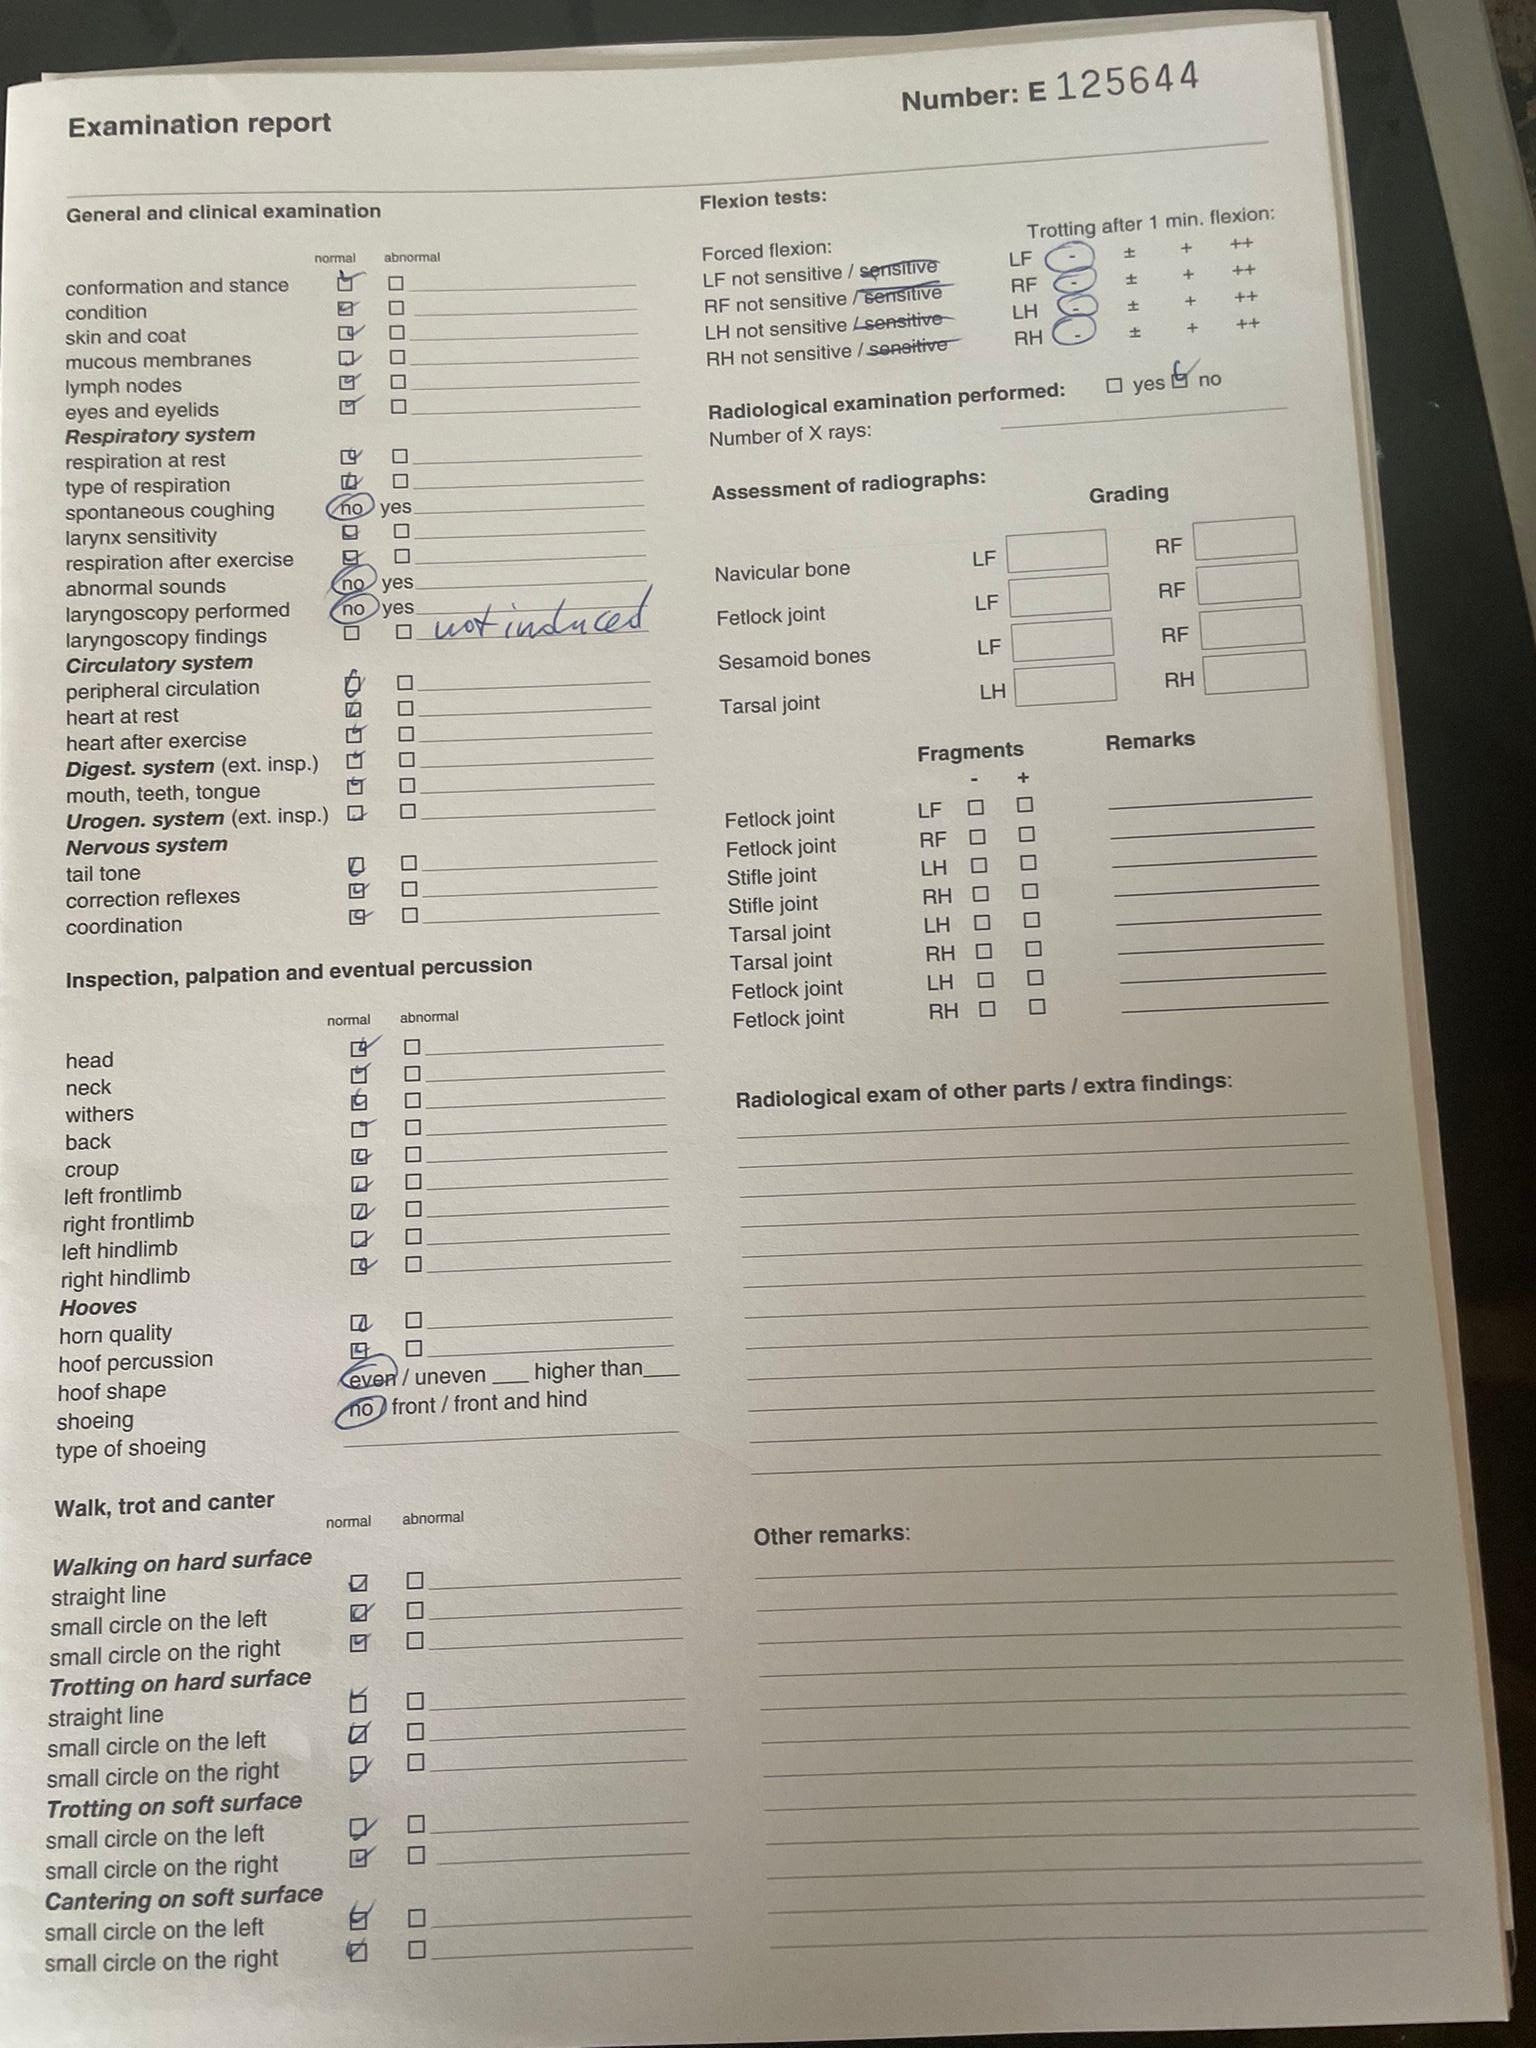 Examination report
Number: E 125644
General and clinical examination
normal abnormal
conformation and stance
condition
skin and coat
mucous membranes
lymph nodes
eyes and eyelids
Respiratory system
respiration at rest
type of respiration
spontaneous coughing no yes
larynx sensitivity
respiration after exercise
abnormal sounds no yes
laryngoscopy performed no yes
laryngoscopy findings not induced
Circulatory system
peripheral circulation
heart at rest
heart after exercise
Digest. system (ext. insp.)
mouth, teeth, tongue
Urogen. system (ext. insp.)
Nervous system
tail tone
correction reflexes
coordination
Inspection, palpation and eventual percussion
normal abnormal
head
neck
withers
back
croup
left frontlimb
right frontlimb
left hindlimb
right hindlimb
Hooves
horn quality
hoof percussion
hoof shape even / uneven ___ higher than___
shoeing no / front / front and hind
type of shoeing
Walk, trot and canter
normal abnormal
Walking on hard surface
straight line
small circle on the left
small circle on the right
Trotting on hard surface
straight line
small circle on the left
small circle on the right
Trotting on soft surface
small circle on the left
small circle on the right
Cantering on soft surface
small circle on the left
small circle on the right
Flexion tests:
Forced flexion: Trotting after 1 min. flexion:
LF not sensitive / sensitive LF - ± + ++
RF not sensitive / sensitive RF - ± + ++
LH not sensitive / sensitive LH - ± + ++
RH not sensitive / sensitive RH - ± + ++
Radiological examination performed: yes no
Number of X rays:
Assessment of radiographs: Grading
Navicular bone LF RF
Fetlock joint LF RF
Sesamoid bones LF RF
Tarsal joint LH RH
Fragments Remarks
- +
Fetlock joint LF
Fetlock joint RF
Stifle joint LH
Stifle joint RH
Tarsal joint LH
Tarsal joint RH
Fetlock joint LH
Fetlock joint RH
Radiological exam of other parts / extra findings:
Other remarks: